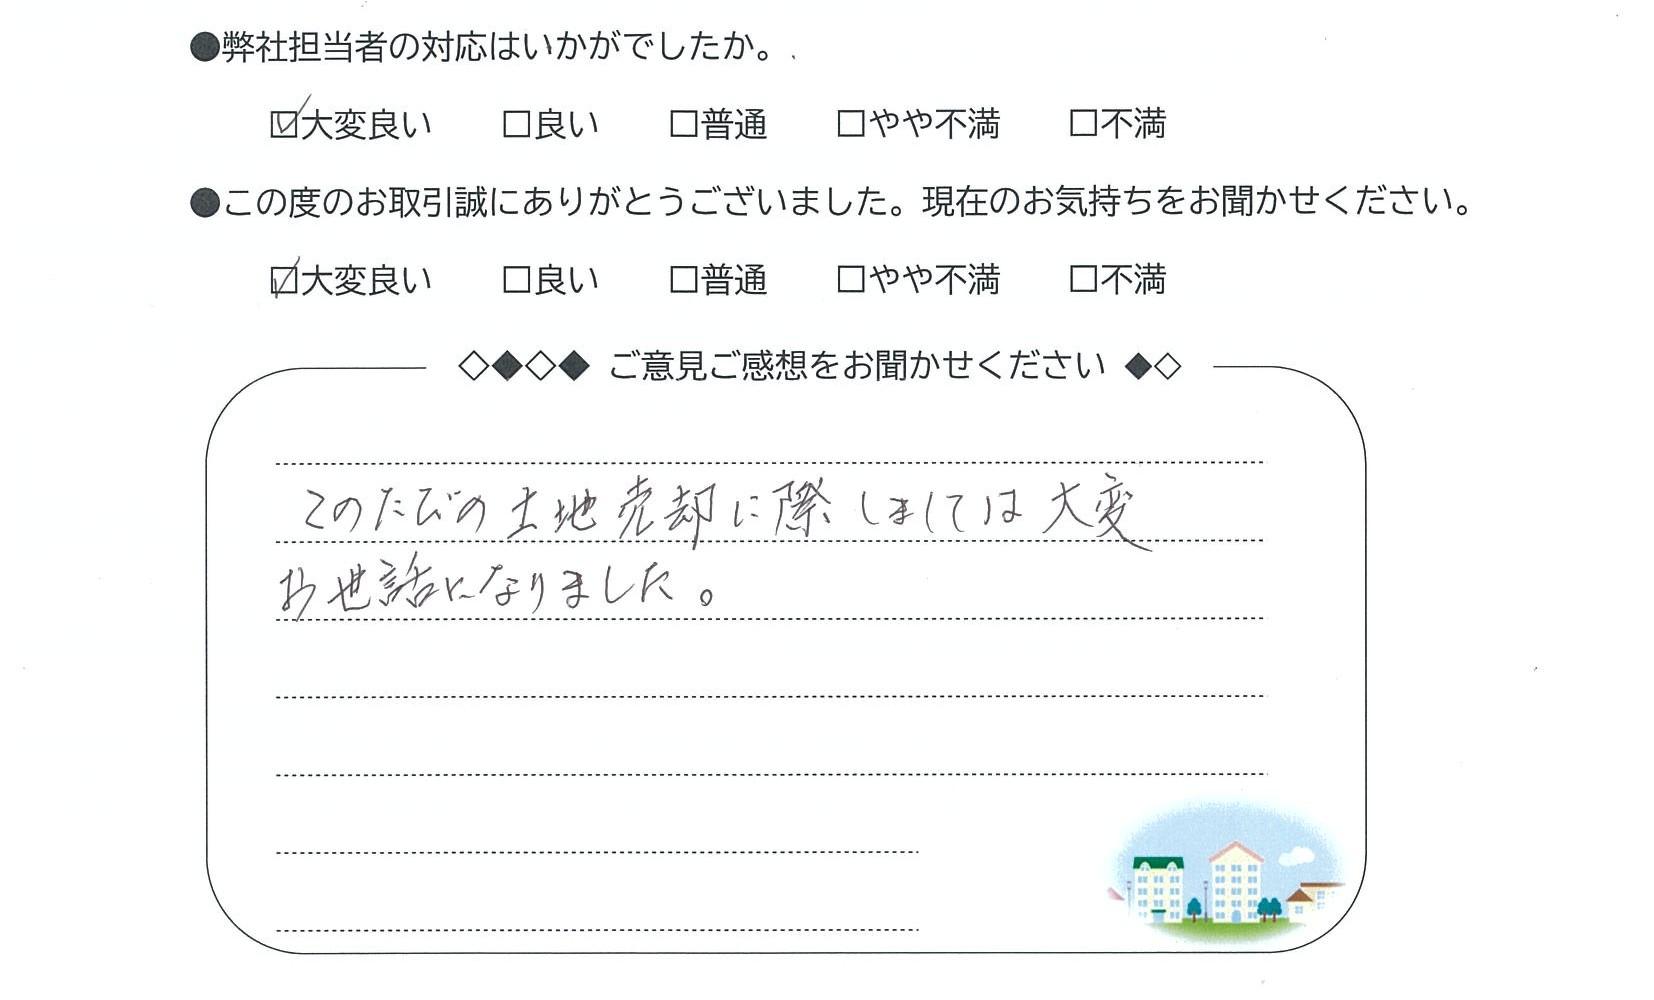 ●弊社担当者の対応はいかがでしたか。
☑大変良い □良い □普通 □やや不満 □不満
●この度のお取引誠にありがとうございました。現在のお気持ちをお聞かせください。
☑大変良い □良い □普通 □やや不満 □不満
◇◆◇◆ ご意見ご感想をお聞かせください ◆◇
このたびの土地売却に際しましては大変
お世話になりました。